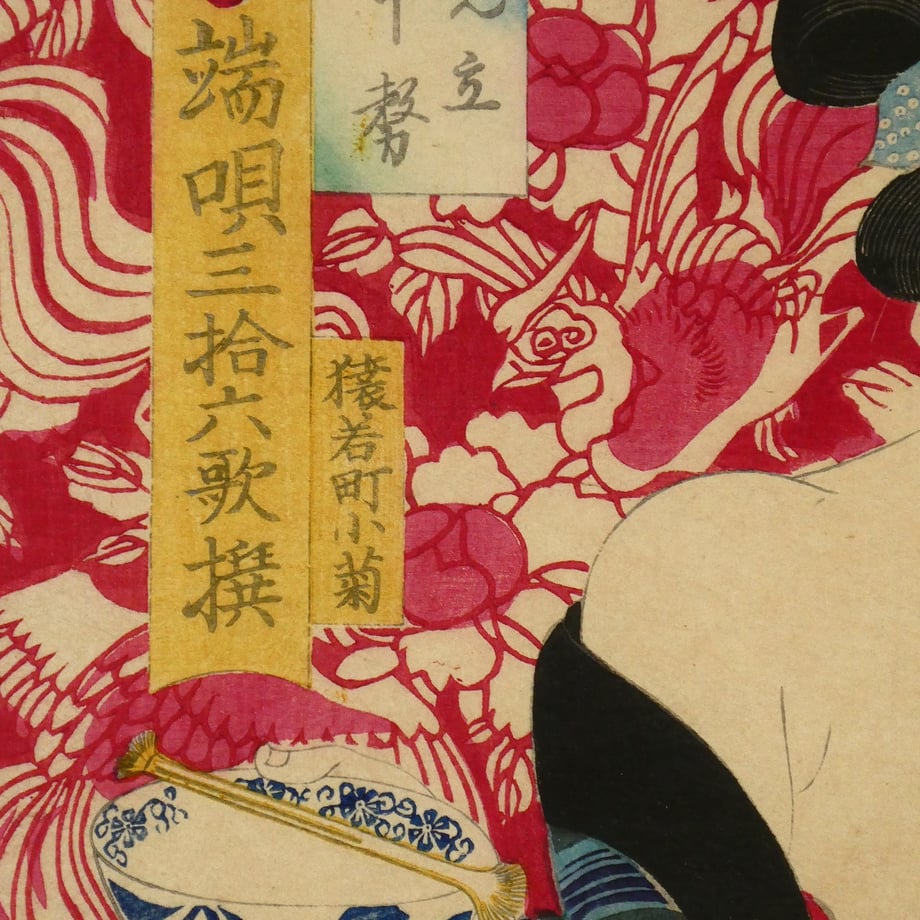 立
端唄三拾六歌撰
猿若町小菊